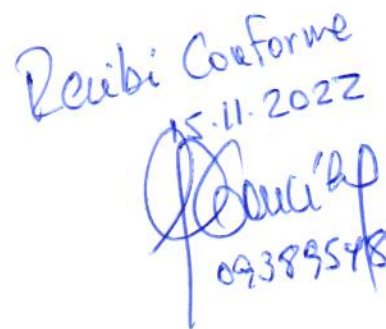 Recibi Conforme
15.11.2022
09389548